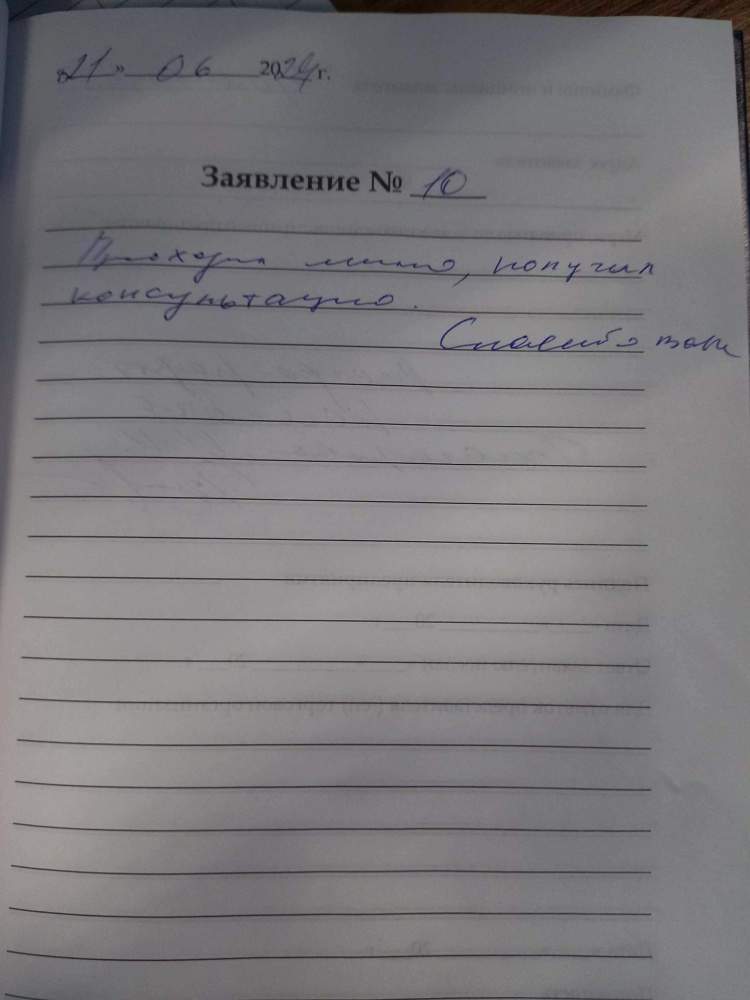 «21» 06 2024 г.
Заявление № 10
Проходил мимо, получил
консультацию.
Спасибо вам